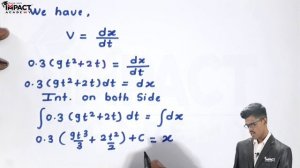 IMPACT
ACADEMY
We have,
V = dx/dt
0.3(9t²+2t) = dx/dt
0.3(9t²+2t)dt = dx
Int. on both Side
∫0.3(9t²+2t)dt = ∫dx
0.3(9t³/3 + 2t²/2)+C = x